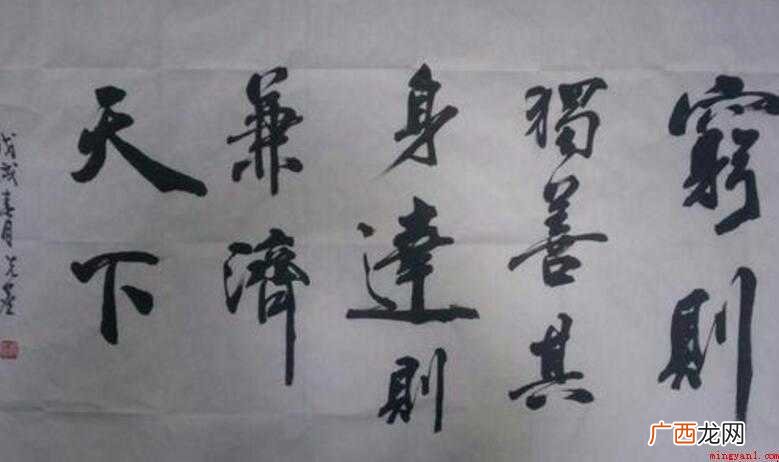 窮則
獨善其
身達則
兼濟
天下
戊戌春月
广西龙网
mingyan1.com